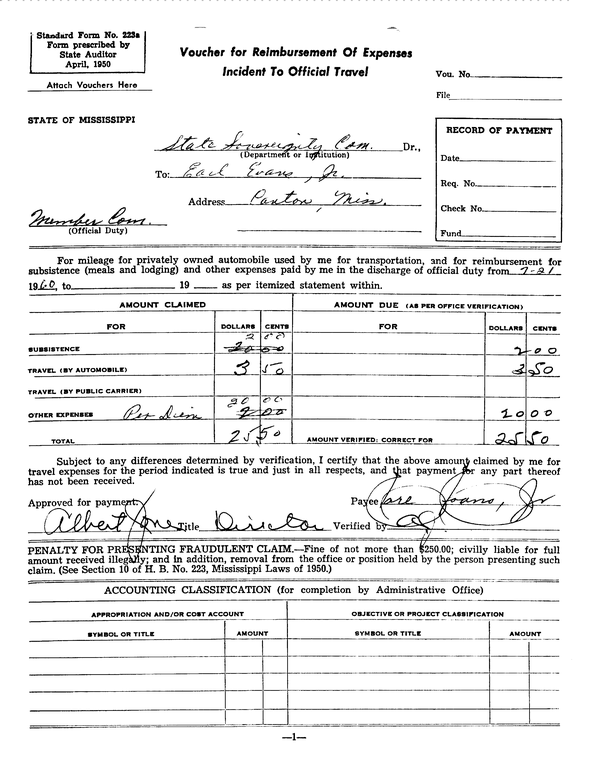 Standard Form No. 223a
Form prescribed by
State Auditor
April, 1950
Attach Vouchers Here
Voucher for Reimbursement Of Expenses
Incident To Official Travel
Vou. No.
File
STATE OF MISSISSIPPI
State Sovereignty Com. Dr.,
(Department or Institution)
To: Earl Evans, Jr.
Address Canton, Miss.
Member Com.
(Official Duty)
RECORD OF PAYMENT
Date
Req. No.
Check No.
Fund
For mileage for privately owned automobile used by me for transportation, and for reimbursement for
subsistence (meals and lodging) and other expenses paid by me in the discharge of official duty from 7-21
1960, to 19 as per itemized statement within.
AMOUNT CLAIMED AMOUNT DUE (AS PER OFFICE VERIFICATION)
FOR DOLLARS CENTS FOR DOLLARS CENTS
2 00
SUBSISTENCE 20 00 2 00
TRAVEL (BY AUTOMOBILE) 3 50 3 50
TRAVEL (BY PUBLIC CARRIER)
20 00
OTHER EXPENSES Per Diem 2 00 20 00
TOTAL 25 50 AMOUNT VERIFIED: CORRECT FOR 25 50
Subject to any differences determined by verification, I certify that the above amount claimed by me for
travel expenses for the period indicated is true and just in all respects, and that payment for any part thereof
has not been received.
Approved for payment: Payee Evans, Jr
Albert Jones Title Director Verified by
PENALTY FOR PRESENTING FRAUDULENT CLAIM.—Fine of not more than $250.00; civilly liable for full
amount received illegally; and in addition, removal from the office or position held by the person presenting such
claim. (See Section 10 of H. B. No. 223, Mississippi Laws of 1950.)
ACCOUNTING CLASSIFICATION (for completion by Administrative Office)
APPROPRIATION AND/OR COST ACCOUNT OBJECTIVE OR PROJECT CLASSIFICATION
SYMBOL OR TITLE AMOUNT SYMBOL OR TITLE AMOUNT
—1—